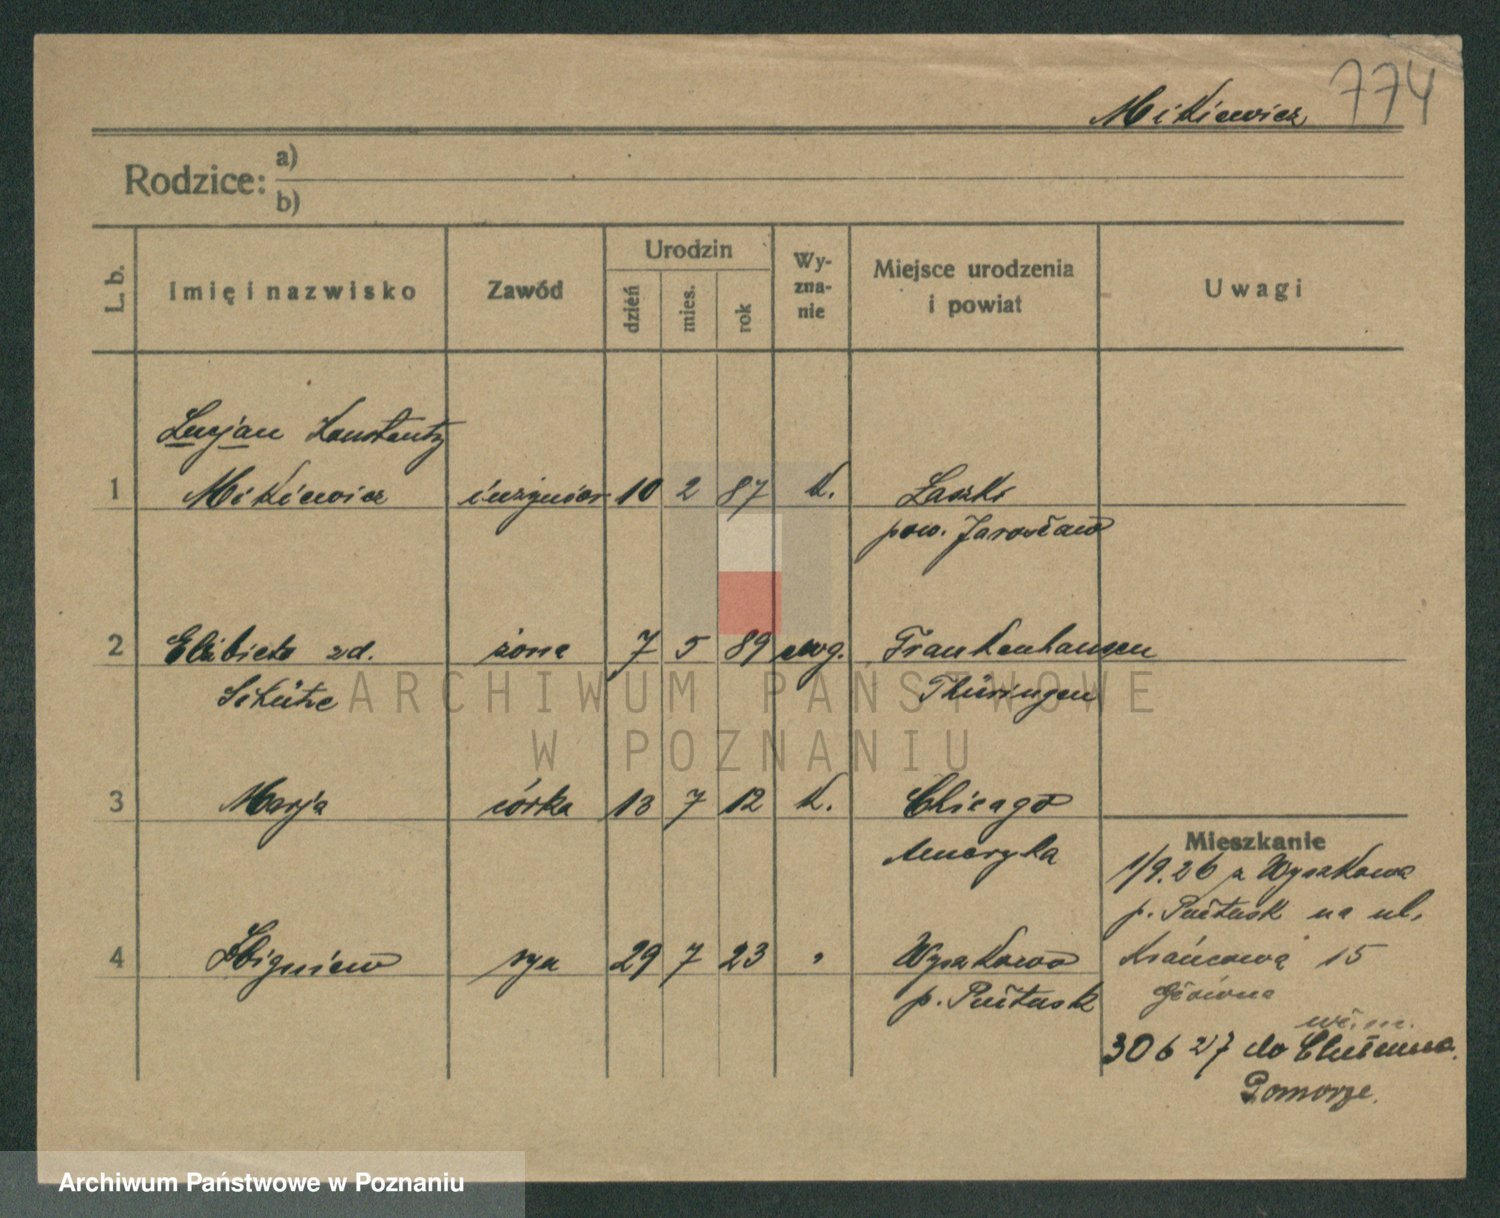 Mikiewicz 774
Rodzice: a)
b)
L. b. Imię i nazwisko Zawód Urodzin dzień mies. rok Wy-zna-nie Miejsce urodzenia i powiat Uwagi
Lucjan Konstanty
1 Mikiewicz inżynier 10 2 87 k. Laszki
pow. Jarosław
2 Elżbieta zd. żona 7 5 89 ewg. Frankenhausen
Schütze Thüringen
3 Marja córka 13 7 12 k. Chicago
Ameryka
Mieszkanie
1/9.26 z Wyszkowa
p. Pułtusk na ul.
4 Zbigniew syn 29 7 23 " Wyszkowo Krańcową 15
p. Pułtusk Główna
30 6 27 do
Pomorze.
ARCHIWUM PAŃSTWOWE
W POZNANIU
Archiwum Państwowe w Poznaniu